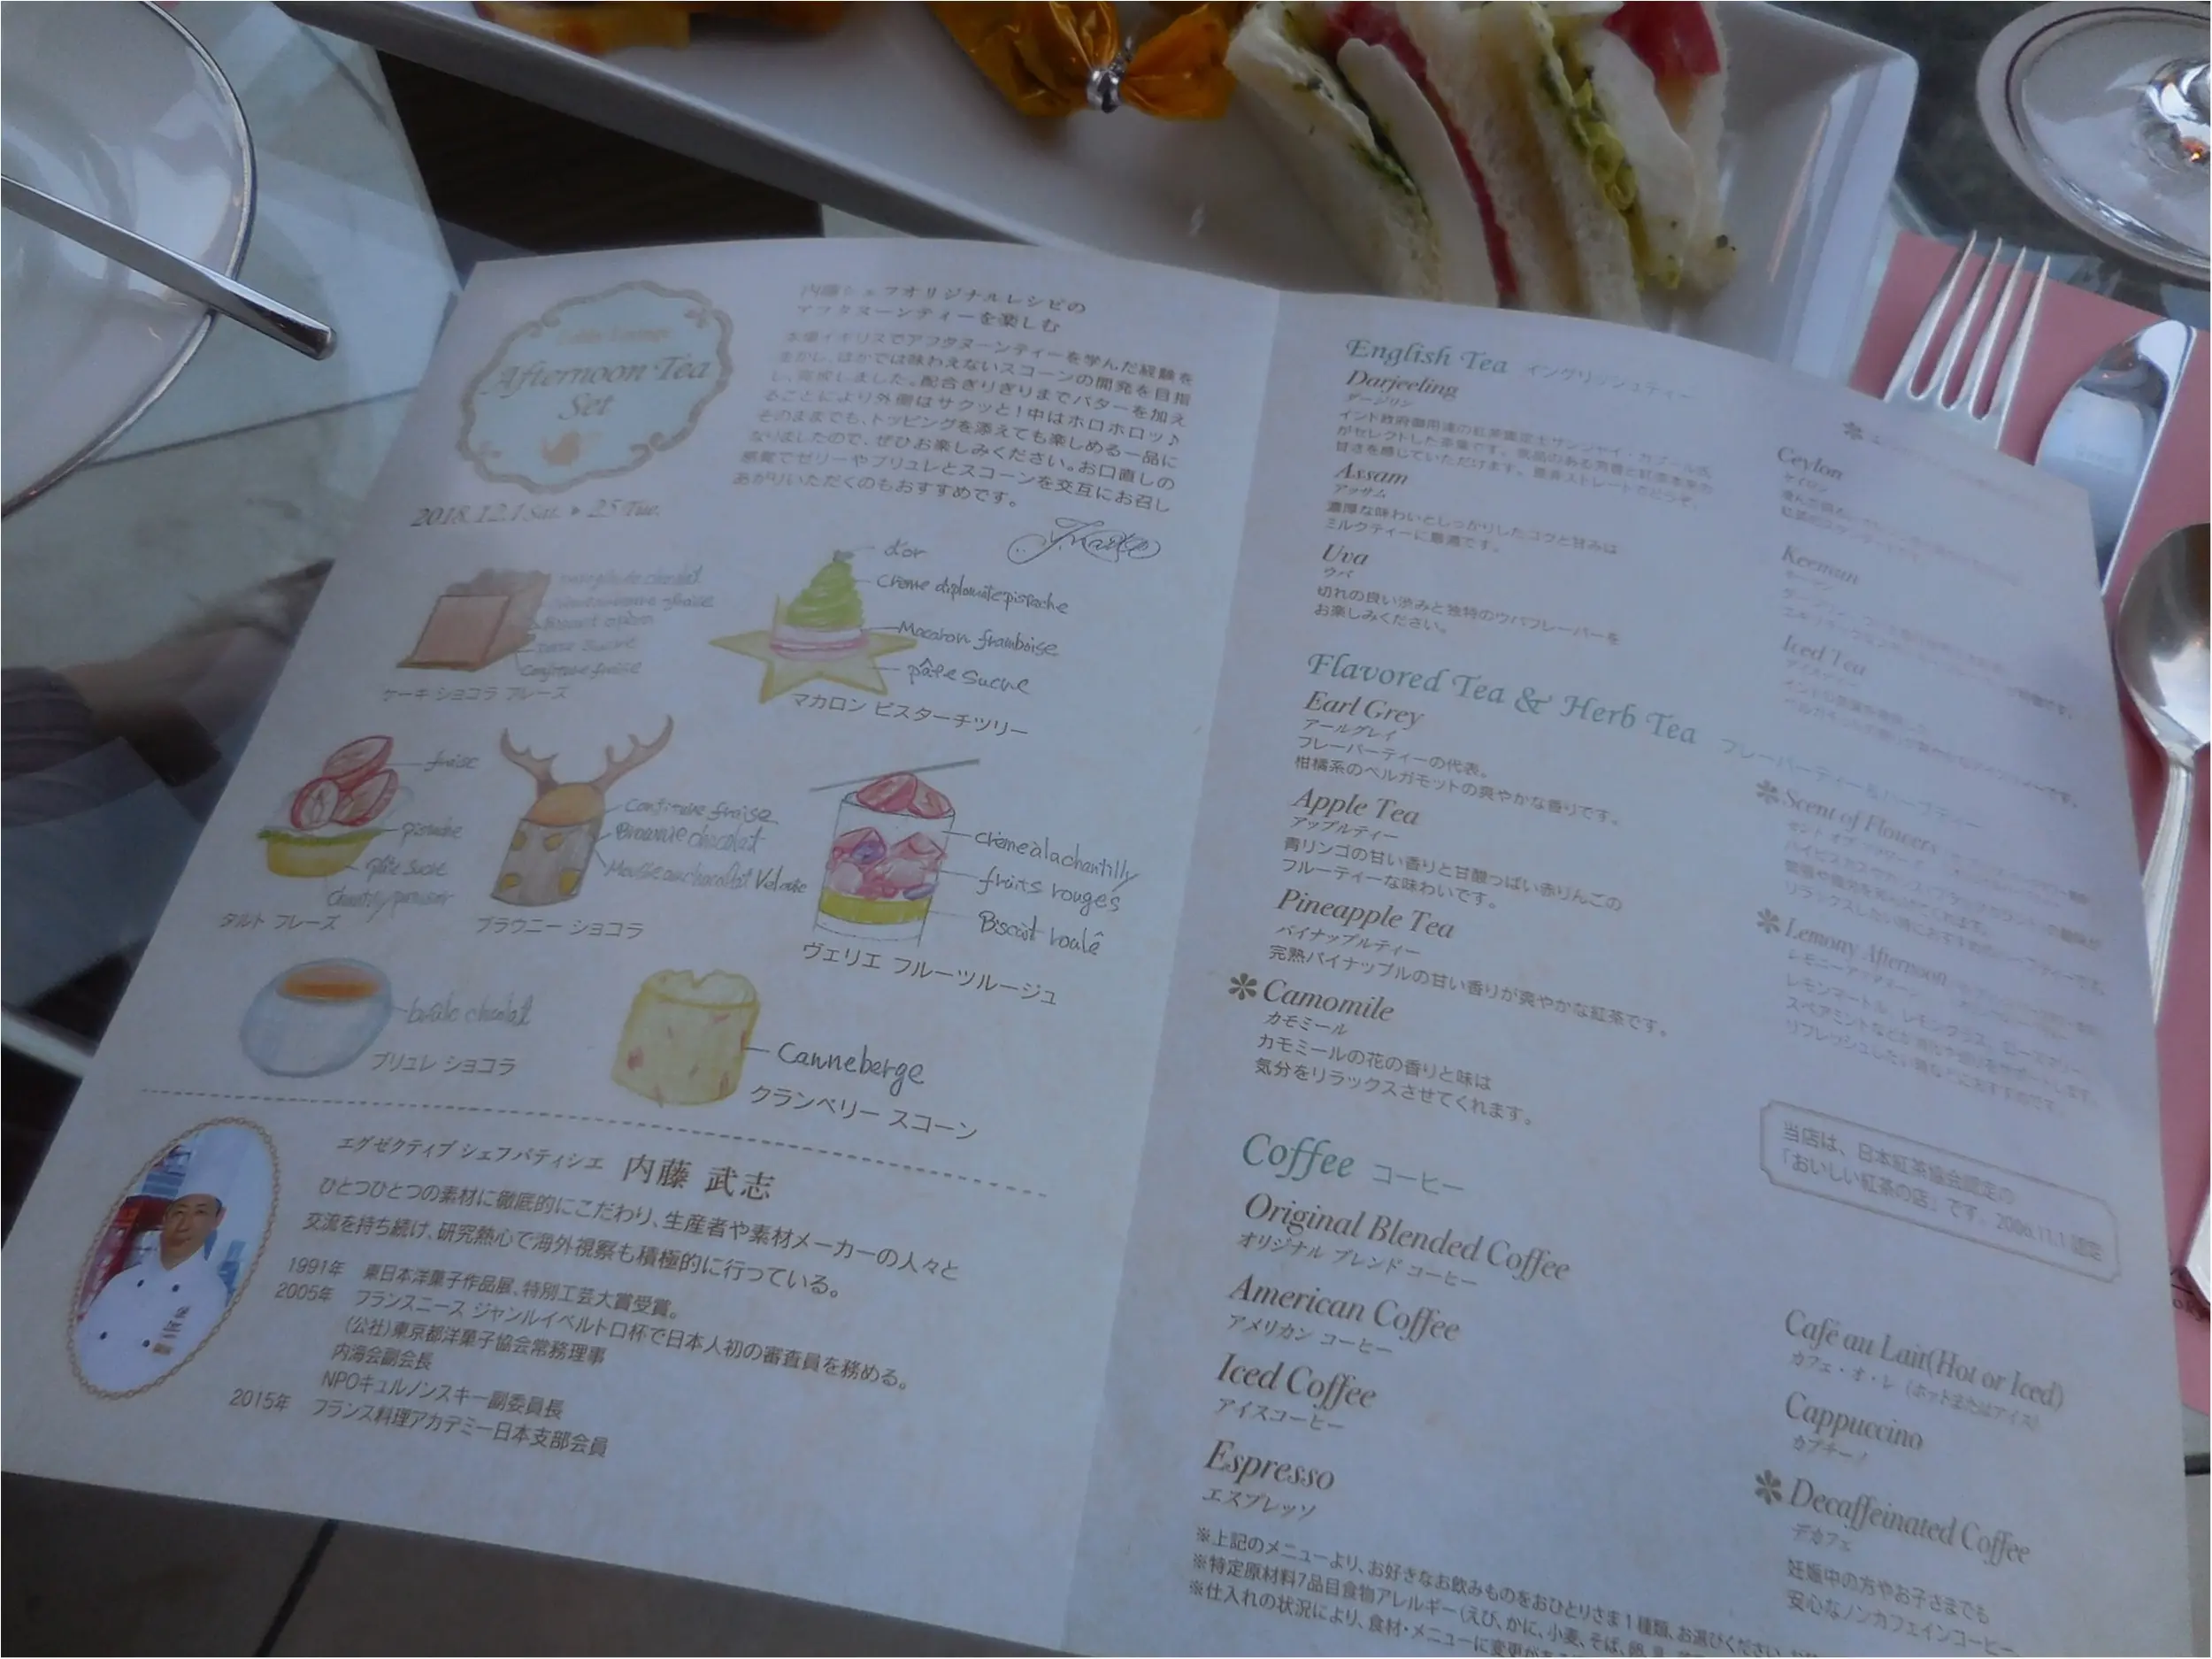 Afternoon Tea
Set
2018.12.1 Sat. ▸ 25 Tue.
内藤シェフオリジナルレシピの
アフタヌーンティーを楽しむ
本場イギリスでアフタヌーンティーを学んだ経験を
生かし、ほかでは味わえないスコーンの開発を目指
し、完成しました。配合ぎりぎりまでバターを加え
ることにより外側はサクッと!中はホロホロッ♪
そのままでも、トッピングを添えても楽しめる一品に
なりましたので、ぜひお楽しみください。お口直しの
感覚でゼリーやブリュレとスコーンを交互にお召し
あがりいただくのもおすすめです。
confiture fraise
ケーキ ショコラ フレーズ
d'or
Crème diplomate pistache
Macaron framboise
pâte sucre
マカロン ピスターチツリー
fraise
pistache
pâte sucre
タルト フレーズ
Confiture fraise
Brownie chocolat
Mousse au chocolat
ブラウニー ショコラ
crème à la chantilly
fruits rouges
Biscuit roulé
ヴェリエ フルーツルージュ
brûle chocolat
ブリュレ ショコラ
Canneberge
クランベリー スコーン
エグゼクティブ シェフパティシエ 内藤 武志
ひとつひとつの素材に徹底的にこだわり、生産者や素材メーカーの人々と
交流を持ち続け、研究熱心で海外視察も積極的に行っている。
1991年 東日本洋菓子作品展、特別工芸大賞受賞。
2005年 フランスニース ジャンルイベルトロ杯で日本人初の審査員を務める。
(公社)東京都洋菓子協会常務理事
内海会副会長
NPOキュルノンスキー副委員長
2015年 フランス料理アカデミー日本支部会員
English Tea イングリッシュティー
Darjeeling
ダージリン
インド政府御用達の紅茶鑑定士サンジャイ・カプール氏
がセレクトした茶葉です。気品のある芳香と紅茶本来の
甘さを感じていただけます。是非ストレートでどうぞ。
Assam
アッサム
濃厚な味わいとしっかりしたコクと甘みは
ミルクティーに最適です。
Uva
ウバ
切れの良い渋みと独特のウバフレーバーを
お楽しみください。
Ceylon
セイロン
Keemun
キーマン
Iced Tea
アイスティー
Flavored Tea & Herb Tea フレーバーティー&ハーブティー
Earl Grey
アールグレイ
フレーバーティーの代表。
柑橘系のベルガモットの爽やかな香りです。
Apple Tea
アップルティー
青リンゴの甘い香りと甘酸っぱい赤りんごの
フルーティーな味わいです。
Pineapple Tea
パイナップルティー
完熟パイナップルの甘い香りが爽やかな紅茶です。
✽Camomile
カモミール
カモミールの花の香りと味は
気分をリラックスさせてくれます。
✽Scent of Flowers
セント オブ フラワーズ
リラックスしたい時におすすめのハーブティーです。
✽Lemony Afternoon
レモニーアフタヌーン
レモンマートル、レモングラス、ローズマリー、
リフレッシュしたい時などにおすすめです。
当店は、日本紅茶協会認定の
「おいしい紅茶の店」です。2006.11.1 認定
Coffee コーヒー
Original Blended Coffee
オリジナル ブレンド コーヒー
American Coffee
アメリカン コーヒー
Iced Coffee
アイスコーヒー
Espresso
エスプレッソ
Café au Lait(Hot or Iced)
カフェ・オ・レ (ホットまたはアイス)
Cappuccino
カプチーノ
✽Decaffeinated Coffee
デカフェ
妊娠中の方やお子さまでも
安心なノンカフェインコーヒー
※上記のメニューより、お好きなお飲みものをおひとりさま1種類、お選びください。
※特定原材料7品目食物アレルギー(えび、かに、小麦、そば、卵、
※仕入れの状況により、食材・メニューに変更がある